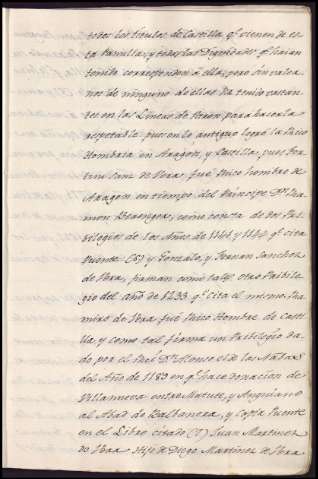 todos los titulos de Castilla qe vienen de es-
ta familia, y todas las Dignidades qe haian
tenido correspondan á ellas, pero sin valer-
nos de ninguno de ellas ha tenido bastan-
tes en las Lineas de Varon, para hacerla
respetable pues en lo antiguo logró la Rico
Hombria en Aragon, y Castilla, pues For-
tun Sanz de Vera fué Rico hombre de
Aragon en tiempo del Principe Dn Ra-
mon Berenguer, como consta de dos Pri-
bilegios de los Años de 1141 y 1144 qe cita
Puente (S) y Gonzalo, y Sanchez
de Vera, firman como tales otro Pribile-
gio del año de 1233 qe cita el mismo, Ra-
miro de Vera fué Rico Hombre de Casti-
lla y como tal firma un Pribilegio da-
do, por el Rey Dn Alonso el de las Nabas
del Año de 1183 en qe hace donacion de
Villanueva entre Matute, y Anguiano
al Abad de Balbanera, y Copia Puente
en el Libro citado (T) Juan Martinez
de Vera Hijo de Diego Martinez de Vera